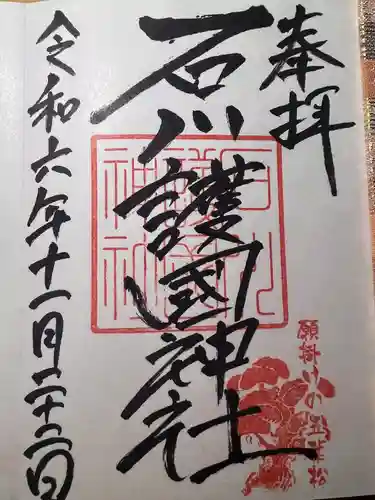 奉拝
石川護國神社
令和六年十一月二十二日
石川護國神社